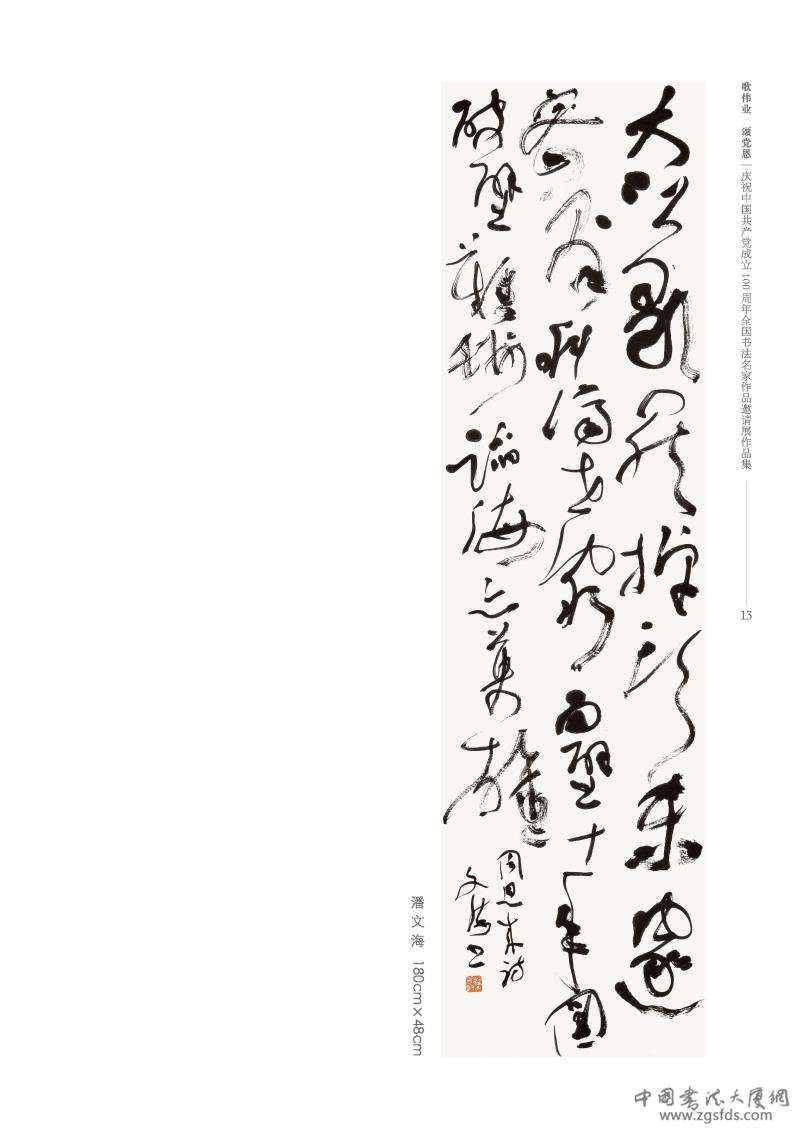 歌伟业 颂党恩 | 庆祝中国共产党成立100周年全国书法名家作品邀请展作品集
13
大江歌罷掉頭東邃
密群科濟世窮面壁十年圖
破壁難酬蹈海亦英雄
周恩来詩
文海書
潘文海 180cm×48cm
中國書法大厦網
www.zgsfds.com